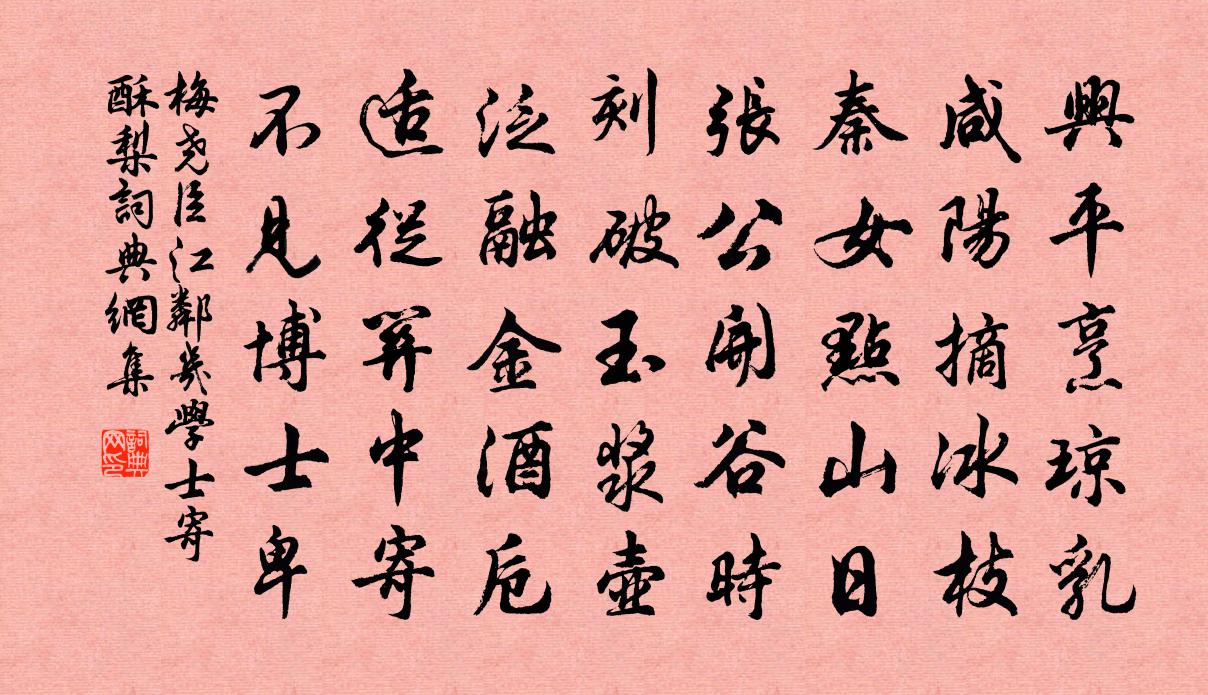 興平烹琼乳
咸陽摘冰枝
秦女點山日
張公開谷時
刻破玉漿壺
泛融金酒卮
适從關中寄
不見博士卑
梅尧臣江鄰幾學士寄
酥梨詞典網集
詞典
网印